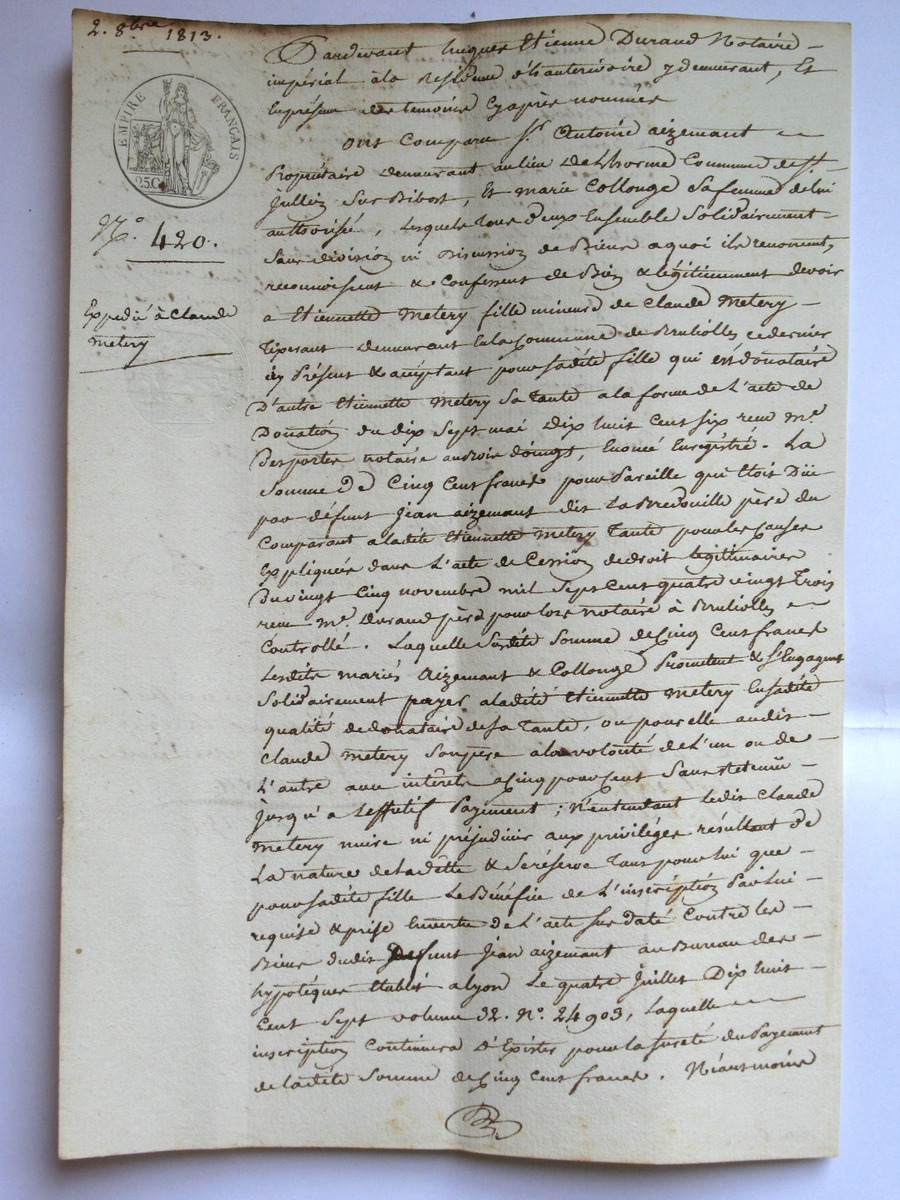 2. 8bre 1813.
EMPIRE FRANÇAIS
25.C.
N.o 420.
Expedié à Claude
Metery
Pardevant hugues Etienne Durand Notaire
impérial à la Residence d'hauterivoire y demeurant, Et
En présence des temoins Cyaprès nommés
ont Comparu Sr. Antoine aizemant
Propriétaire demeurant au lieu de Lhorme Commune de St.
Jullien Sur Bibost, Et marie Collonge Sa femme de lui
authorisé, Lesquels tous deux Ensemble Solidairement
Sans division ni Discussion de Biens a quoi ils renoncent,
reconnoissent & Confessent de Bien & légitimement devoir
a Etiennette Metery fille mineure de Claude Metery
Tixerant demeurant En la Commune de Brullioles, ce dernier
ici Présent & acceptant pour Sadite fille qui est donataire
D'autre Etiennette Metery Sa Tante a la forme de L'acte de
Donation du dix Sept mai Dix huit Cent Six reçu Me.
Desportes notaire au Bois d'oingt, Enoncé Enregistré. La
Somme De Cinq Cent francs pour Pareille qui Etoit Düe
par défunt Jean aizemant dit La Bredouille père du
Comparant a ladite Etiennette Metery Tante pour les Causes
Expliquées dans L'acte de Cession de droit legitimaires
Du vingt Cinq novembre mil Sept Cent quatre vingt Trois
reçu Me. Durand père pour lors notaire à Brullioles
Controllé. Laquelle Susdite Somme de Cinq Cent francs
Lesdits mariés Aizemant & Collonge Promettent & S'Engagent
Solidairement payer a ladite Etiennette Metery En Sadite
qualité de donataire de Sa Tante, ou pour elle audit
Claude Metery Son père a la volonté de L'un ou de
L'autre aux intérêts a Cinq pour Cent Sans retenue
Jusqu'a L'effectif Payement ; N'entendant Ledit Claude
Metery nuire ni préjudicier aux priviléges résultant de
La nature de Ladette & Se réserve Tant pour Lui que
pour Sadite fille Le Bénéfice de L'inscription Par Lui
requise & prise En vertu de L'acte Sus daté Contre les
Biens dudit Defunt Jean aizemant au Bureau des
hypotéques Etabli a Lyon Le quatre Juillet Dix huit
Cent Sept volume 32. No. 24903, Laquelle
inscription Continuera d'Exister pour la Sureté du Payement
de ladite Somme de Cinq Cent francs. Néantmoins